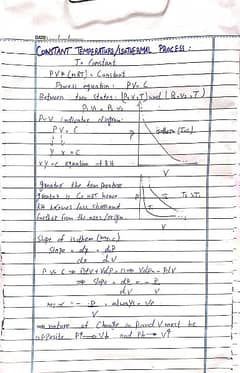 DATE: / /
CONSTANT TEMPERATURE/ISOTHERMAL PROCESS:
T = Constant
PV = (nRT) = Constant
Process equation: PV = C
Between two states: (P₁V₁T) and (P₂V₂T)
P₁V₁ = P₂V₂
P-V indicator diagram:
PV = C
P
isotherm (T=c)
x.y = c equation of RH
V
greater the temperature
greater is C = nRT hence
P
T₂ > T₁
RH becomes less steep and
further from the axes/origin.
V
Slope of isotherm
Slope = dy = dP
dx dV
PV = C ⇒ PdV + VdP = 0 ⇒ VdP = -PdV
⇒ Slope = dP = - P
dV V
= - P = always -ve
V
⇒ nature of Change in P and V must be
opposite P↑ → V↓ and P↓ → V↑